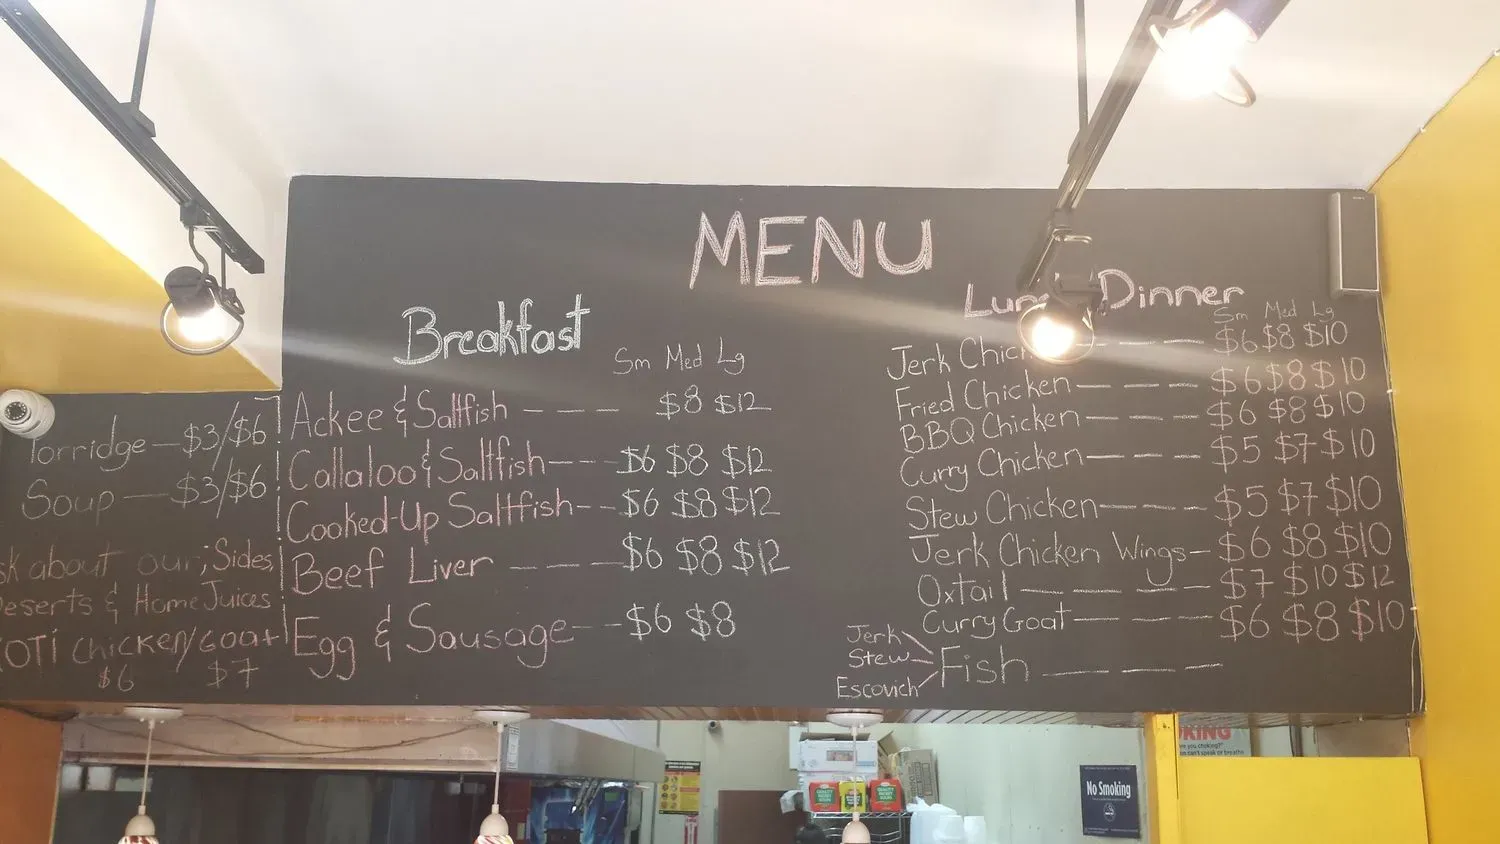 MENU
Breakfast
Sm Med Lg
Ackee & Saltfish ---- $8 $12
Callaloo & Saltfish --- $6 $8 $12
Cooked-Up Saltfish -- $6 $8 $12
Beef Liver ---- $6 $8 $12
Egg & Sausage -- $6 $8
Dinner
Sm Med Lg
Jerk ---- $6 $8 $10
Fried Chicken ---- $6 $8 $10
BBQ Chicken ---- $6 $8 $10
Curry Chicken ---- $5 $7 $10
Stew Chicken ---- $5 $7 $10
Jerk Chicken Wings - $6 $8 $10
Oxtail ---- $7 $10 $12
Curry Goat ---- $6 $8 $10
Jerk
Stew
Escovich
Fish ----
Porridge - $3/$6
Soup -- $3/$6
about our; Sides,
Deserts & Home Juices
ROTI Chicken/Goat
$6 $7
No Smoking